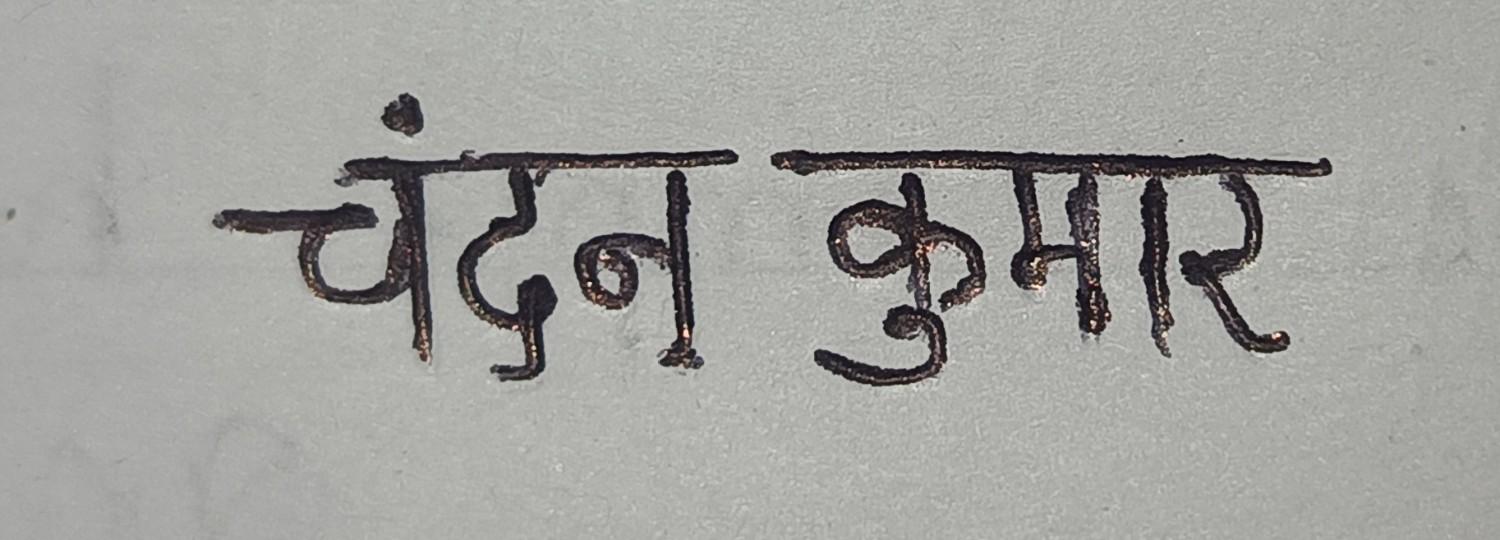 चंदन कुमार